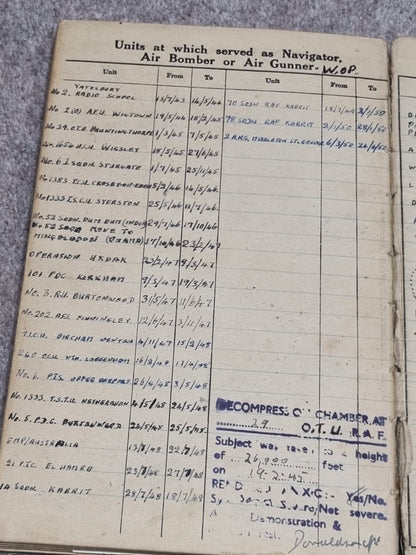 Units at which served as Navigator,
Air Bomber or Air Gunner - W.OP.
Unit From To Unit From To
YATESBURY
No 2. RADIO SCHOOL 15/7/43 16/5/44 70 SQDN RAF KABRIT 18/7/49 2/1/50
No 1 (O) A.F.U. WIGTOWN 19/5/44 18/2/45 78 SQDN RAF KABRIT 2/1/50 28/1/50
No 29. O.T.U. BRUNTINGTHORPE 7/5/45 2 A.N.S. MIDDLETON ST. GEORGE 6/3/50 26/4/50
No. 1656 H.C.U. WIGSLEY 18/5/45 27/6/45
No. 61 SQDN STURGATE 1/7/45 25/11/45
No 1383 T.C.U. CROSBY-ON-EDEN 5/2/46 16/5/46
No 1333 T.S.C.U. SYERSTON 25/5/46 11/7/46
No. 52 SQDN. DUM DUM (INDIA) 29/7/46 17/10/46
No 52 SQDN MOVE TO
MINGLADOON (BURMA) 17/10/46 23/2/47
OPERATION UKDAK 23/2/47 /3/47
101 PDC KIRKHAM 9/3/47 19/3/47
No. 3. R.U. BURTONWOOD 31/5/47 11/6/47
No. 202 AFS FINNINGLEY. 12/6/47 3/11/47
T.I.C.U. BIRCHAM NEWTON 4/11/47 15/2/48
240 O.C.U. NTH. LUFFENHAM 16/2/48 17/4/48
No. 1. P.T.S. UPPER HEYFORD. 26/4/48 3/5/48
No. 1333 T.S.T.U. NETHERAVON 4/5/48 24/5/48
No. 5. P.D.C. BURTONWOOD 24/5/48 25/5/48
EMP/AUSTRALIA 13/7/48 22/7/48
21. P.T.C. EL HAMRA 23/7/48 27/7/48
14. SQDN KABRIT 28/7/48 18/7/49
DECOMPRESSION CHAMBER AT
29 O.T.U. R.A.F.
Subject was taken to a height
of 26,000 feet
on
Yes/No.
Severe/Not severe.
Demonstration &
Donaldson